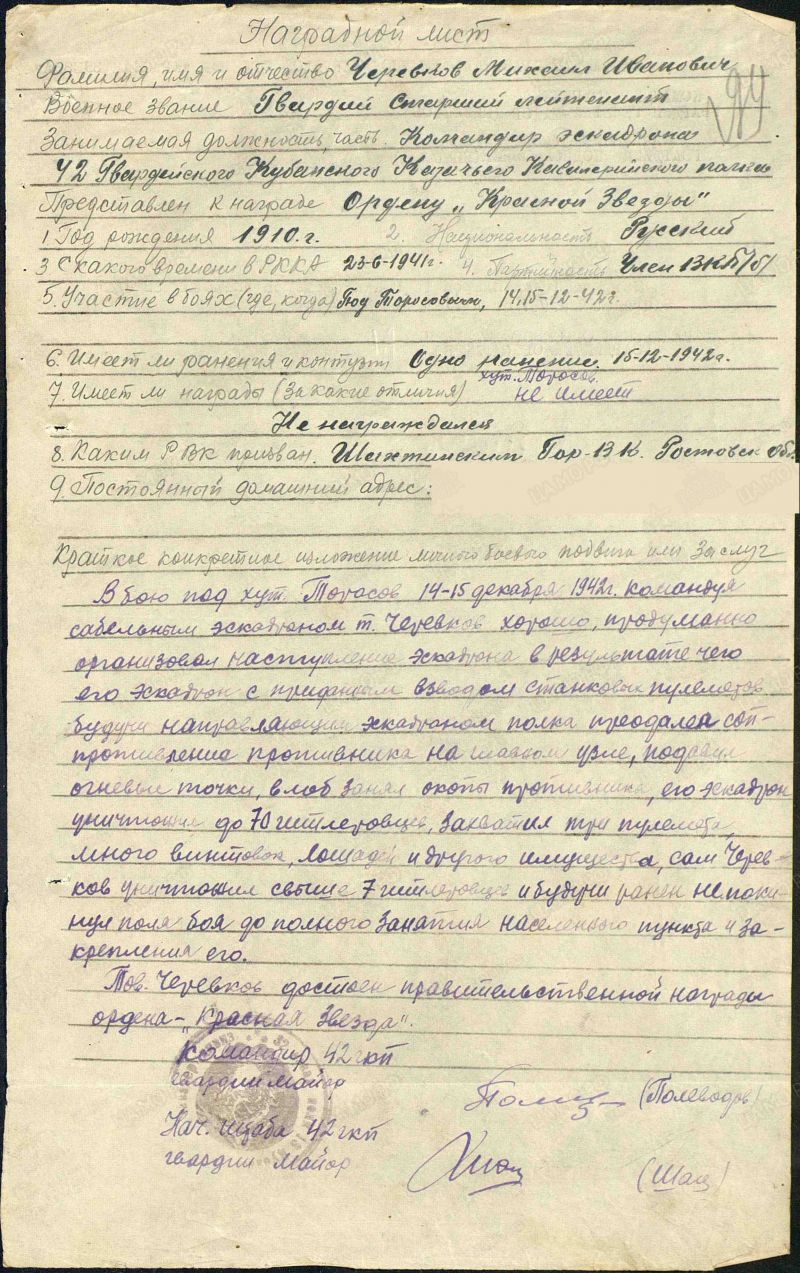 Наградной лист
Фамилия, имя и отчество Черевков Михаил Иванович
Военное звание Гвардии Старший лейтенант
Занимаемая должность, часть. Командир эскадрона
42 Гвардейского Кубанского Казачьего Кавалерийского полка
Представлен к награде Ордену „Красной Звезды"
1 Год рождения 1910 г. 2. Национальность Русский
3 С какого времени в РККА 23-6-1941г. 4. Партийность Член ВКП/б/
5. Участие в боях (где, когда) Под 14,15-12-42 г.
6. Имеет ли ранения и контузии Одно ранение 15-12-1942 г.
хут.
7. Имеет ли награды (за какие отличия) не имеет
Не награждался
8. Каким РВК призван. Шахтинским Гор-ВК. Ростовск обл.
9. Постоянный домашний адрес:
Краткое конкретное изложение личного боевого подвига или заслуг
В бою под хут. 14-15 декабря 1942 г. командуя
сабельным эскадроном т. Черевков хорошо, продуманно
организовал наступление эскадрона в результате чего
его эскадрон с приданым взводом станковых пулеметов
будучи направляющим эскадроном полка преодолел соп-
противление противника на главном узле, подавил
огневые точки, в лоб занял окопы противника, его эскадрон
уничтожил до 70 гитлеровцев, захватил три пулемета,
много винтовок, лошадей и другого имущества, сам Черев-
ков уничтожил свыше 7 гитлеровцев и будучи ранен не поки-
нул поля боя до полного занятия населенного пункта и за-
крепления его.
Тов. Черевков достоен правительственной награды
ордена - „Красная Звезда".
Командир 42 гкп
гвардии майор (Полеводов)
Нач. штаба 42 гкп
гвардии майор (Шац)